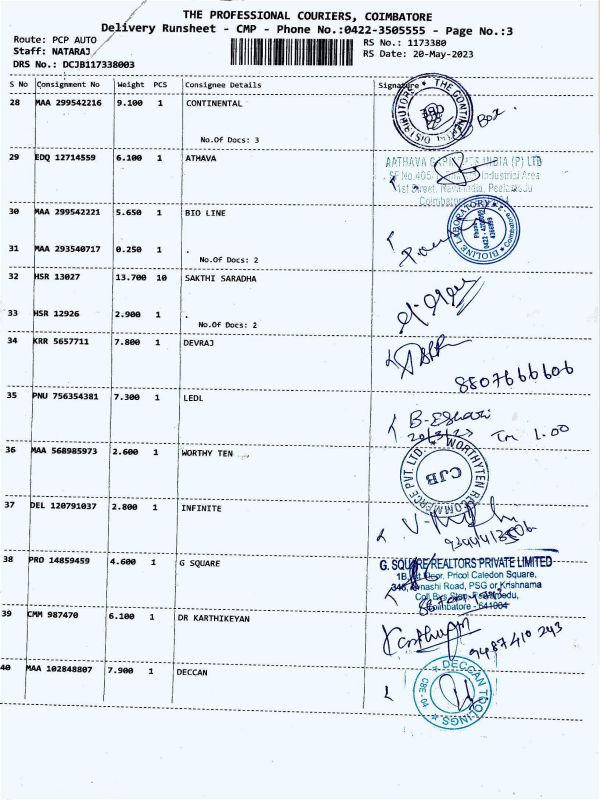 THE PROFESSIONAL COURIERS, COIMBATORE
Delivery Runsheet - CMP - Phone No.:0422-3505555 - Page No.:3
Route: PCP AUTO
RS No.: 1173380
Staff: NATARAJ
RS Date: 20-May-2023
DRS No.: DCJB117338003
S No Consignment No Weight PCS Consignee Details Signature
28 MAA 299542216 9.100 1 CONTINENTAL
THE CONTINENTAL DISTRIBUTORS
Box.
No.Of Docs: 3
29 EDQ 12714559 6.100 1 ATHAVA
AATHAVA INDIA (P) LTD
Industrial Area
1st Street, Nava India, Peelamedu
30 MAA 299542221 5.650 1 BIO LINE
BIOLINE LABORATORY
Coimbatore
31 MAA 293540717 0.250 1 .
No.Of Docs: 2
32 HSR 13027 13.700 10 SAKTHI SARADHA
33 HSR 12926 2.900 1 .
No.Of Docs: 2
34 KRR 5657711 7.800 1 DEVRAJ
8807666606
35 PNU 756354381 7.300 1 LEDL
1.00
36 MAA 568985973 2.600 1 WORTHY TEN
WORTHYTEN RECOMMERCE PVT. LTD.
CJB
37 DEL 120791037 2.800 1 INFINITE
38 PRO 14859459 4.600 1 G SQUARE
G. SQUARE REALTORS PRIVATE LIMITED
Floor, Pricol Caledon Square,
Road, PSG or Krishnama
Coimbatore - 641004
39 CMM 987470 6.100 1 DR KARTHIKEYAN
9487410243
40 MAA 102848807 7.900 1 DECCAN
DECCAN TOOLINGS
CBE-04